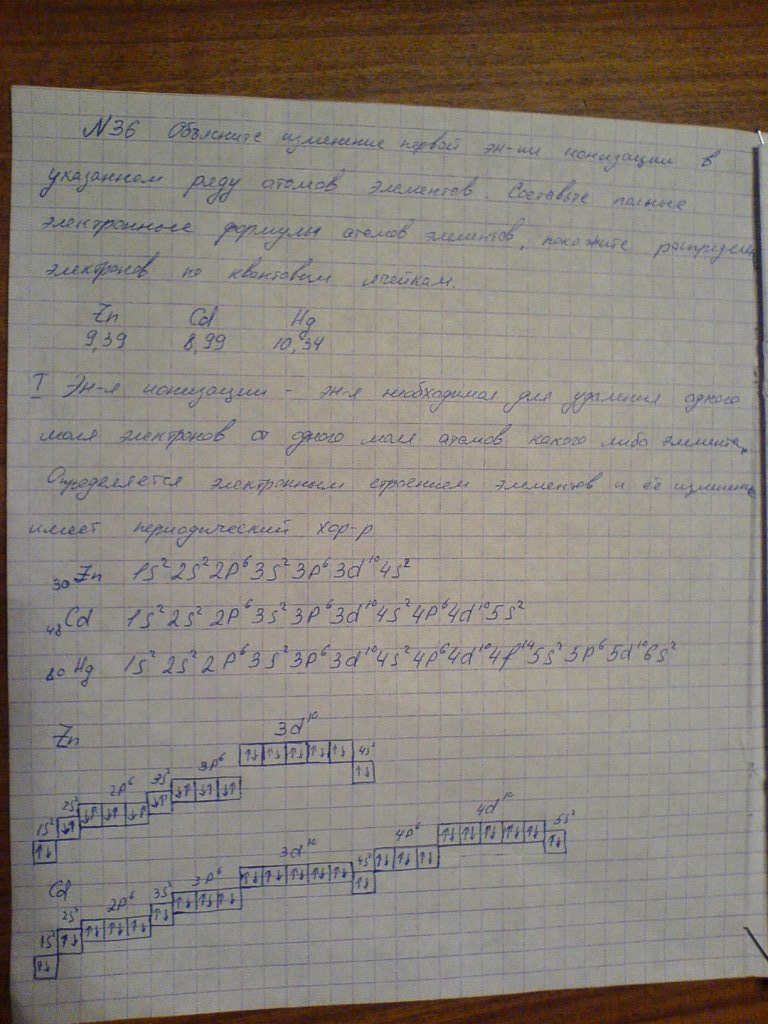 №36 Объясните изменение первой эн-ии ионизации в
указанном ряду атомов элементов. Составьте полные
электронные формулы атомов элементов, покажите распределен
электронов по квантовым ячейкам.
Zn Cd Hg
9,39 8,99 10,34
I Эн-я ионизации - эн-я необходимая для удаления одного
моля электронов от одного моля атомов какого либо элемента.
Определяется электронным строением элементов и её изменение
имеет периодический хар-р
₃₀Zn 1s²2s²2p⁶3s²3p⁶3d¹⁰4s²
₄₈Cd 1s²2s²2p⁶3s²3p⁶3d¹⁰4s²4p⁶4d¹⁰5s²
₈₀Hg 1s²2s²2p⁶3s²3p⁶3d¹⁰4s²4p⁶4d¹⁰4f¹⁴5s²5p⁶5d¹⁰6s²
Zn
1s² 2s² 2p⁶ 3s² 3p⁶ 3d¹⁰ 4s²
↑↓ ↓↑ ↓↑ ↓↑ ↓↑ ↓↑ ↓↑ ↓↑ ↓↑ ↑↓ ↑↓ ↑↓ ↑↓ ↑↓ ↑↓
Cd
1s² 2s² 2p⁶ 3s² 3p⁶ 3d¹⁰ 4s² 4p⁶ 4d¹⁰ 5s²
↑↓ ↑↓ ↑↓ ↑↓ ↑↓ ↑↓ ↑↓ ↑↓ ↑↓ ↑↓ ↑↓ ↑↓ ↑↓ ↑↓ ↑↓ ↑↓ ↑↓ ↑↓ ↑↓ ↑↓ ↑↓ ↑↓ ↑↓ ↑↓